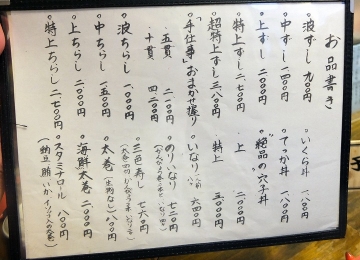 お品書き
○波ずし 九〇〇円
○中ずし 一四〇〇円
○上ずし 二〇〇〇円
○特上ずし 二七〇〇円
○超特上ずし 三八〇〇円
○「手仕事」おまかせ握り
五貫 二一〇〇円
十貫 四二〇〇円
○波ちらし 一〇〇〇円
○中ちらし 一五〇〇円
○上ちらし 二〇〇〇円
○特上ちらし 二七〇〇円
○いくら丼 一八〇〇円
○てっか丼 一八〇〇円
○"絶品の"穴子丼
上 二〇〇〇円
特上 三〇〇〇円
○いなり 六四〇円
○のりいなり 七二〇円
○三色寿し 七六〇円
○太巻 (生物なし) 八〇〇円
○海鮮太巻 二〇〇〇円
○スタミナロール 八〇〇円